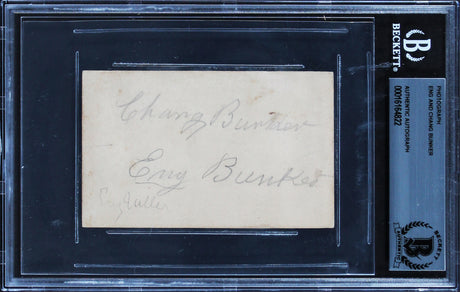 Chang Bunker
Eng Bunker
BECKETT®
PHOTOGRAPH
ENG AND CHANG BUNKER
AUTHENTIC AUTOGRAPH
00016164822
BECKETT
AUTHENTIC